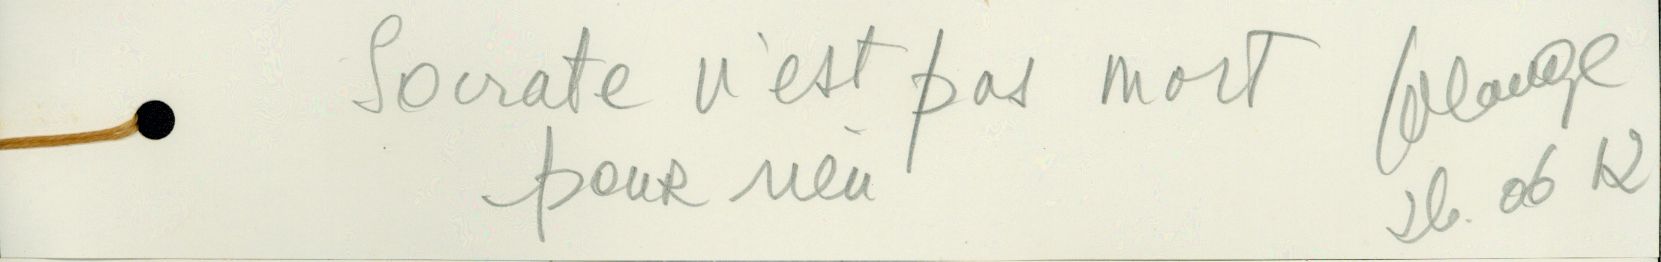 Socrate n'est pas mort
pour rien
26. 06 12